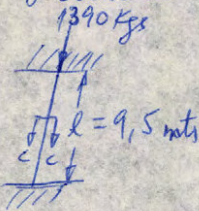 1390 Kgs
l = 9,5 mts
c c